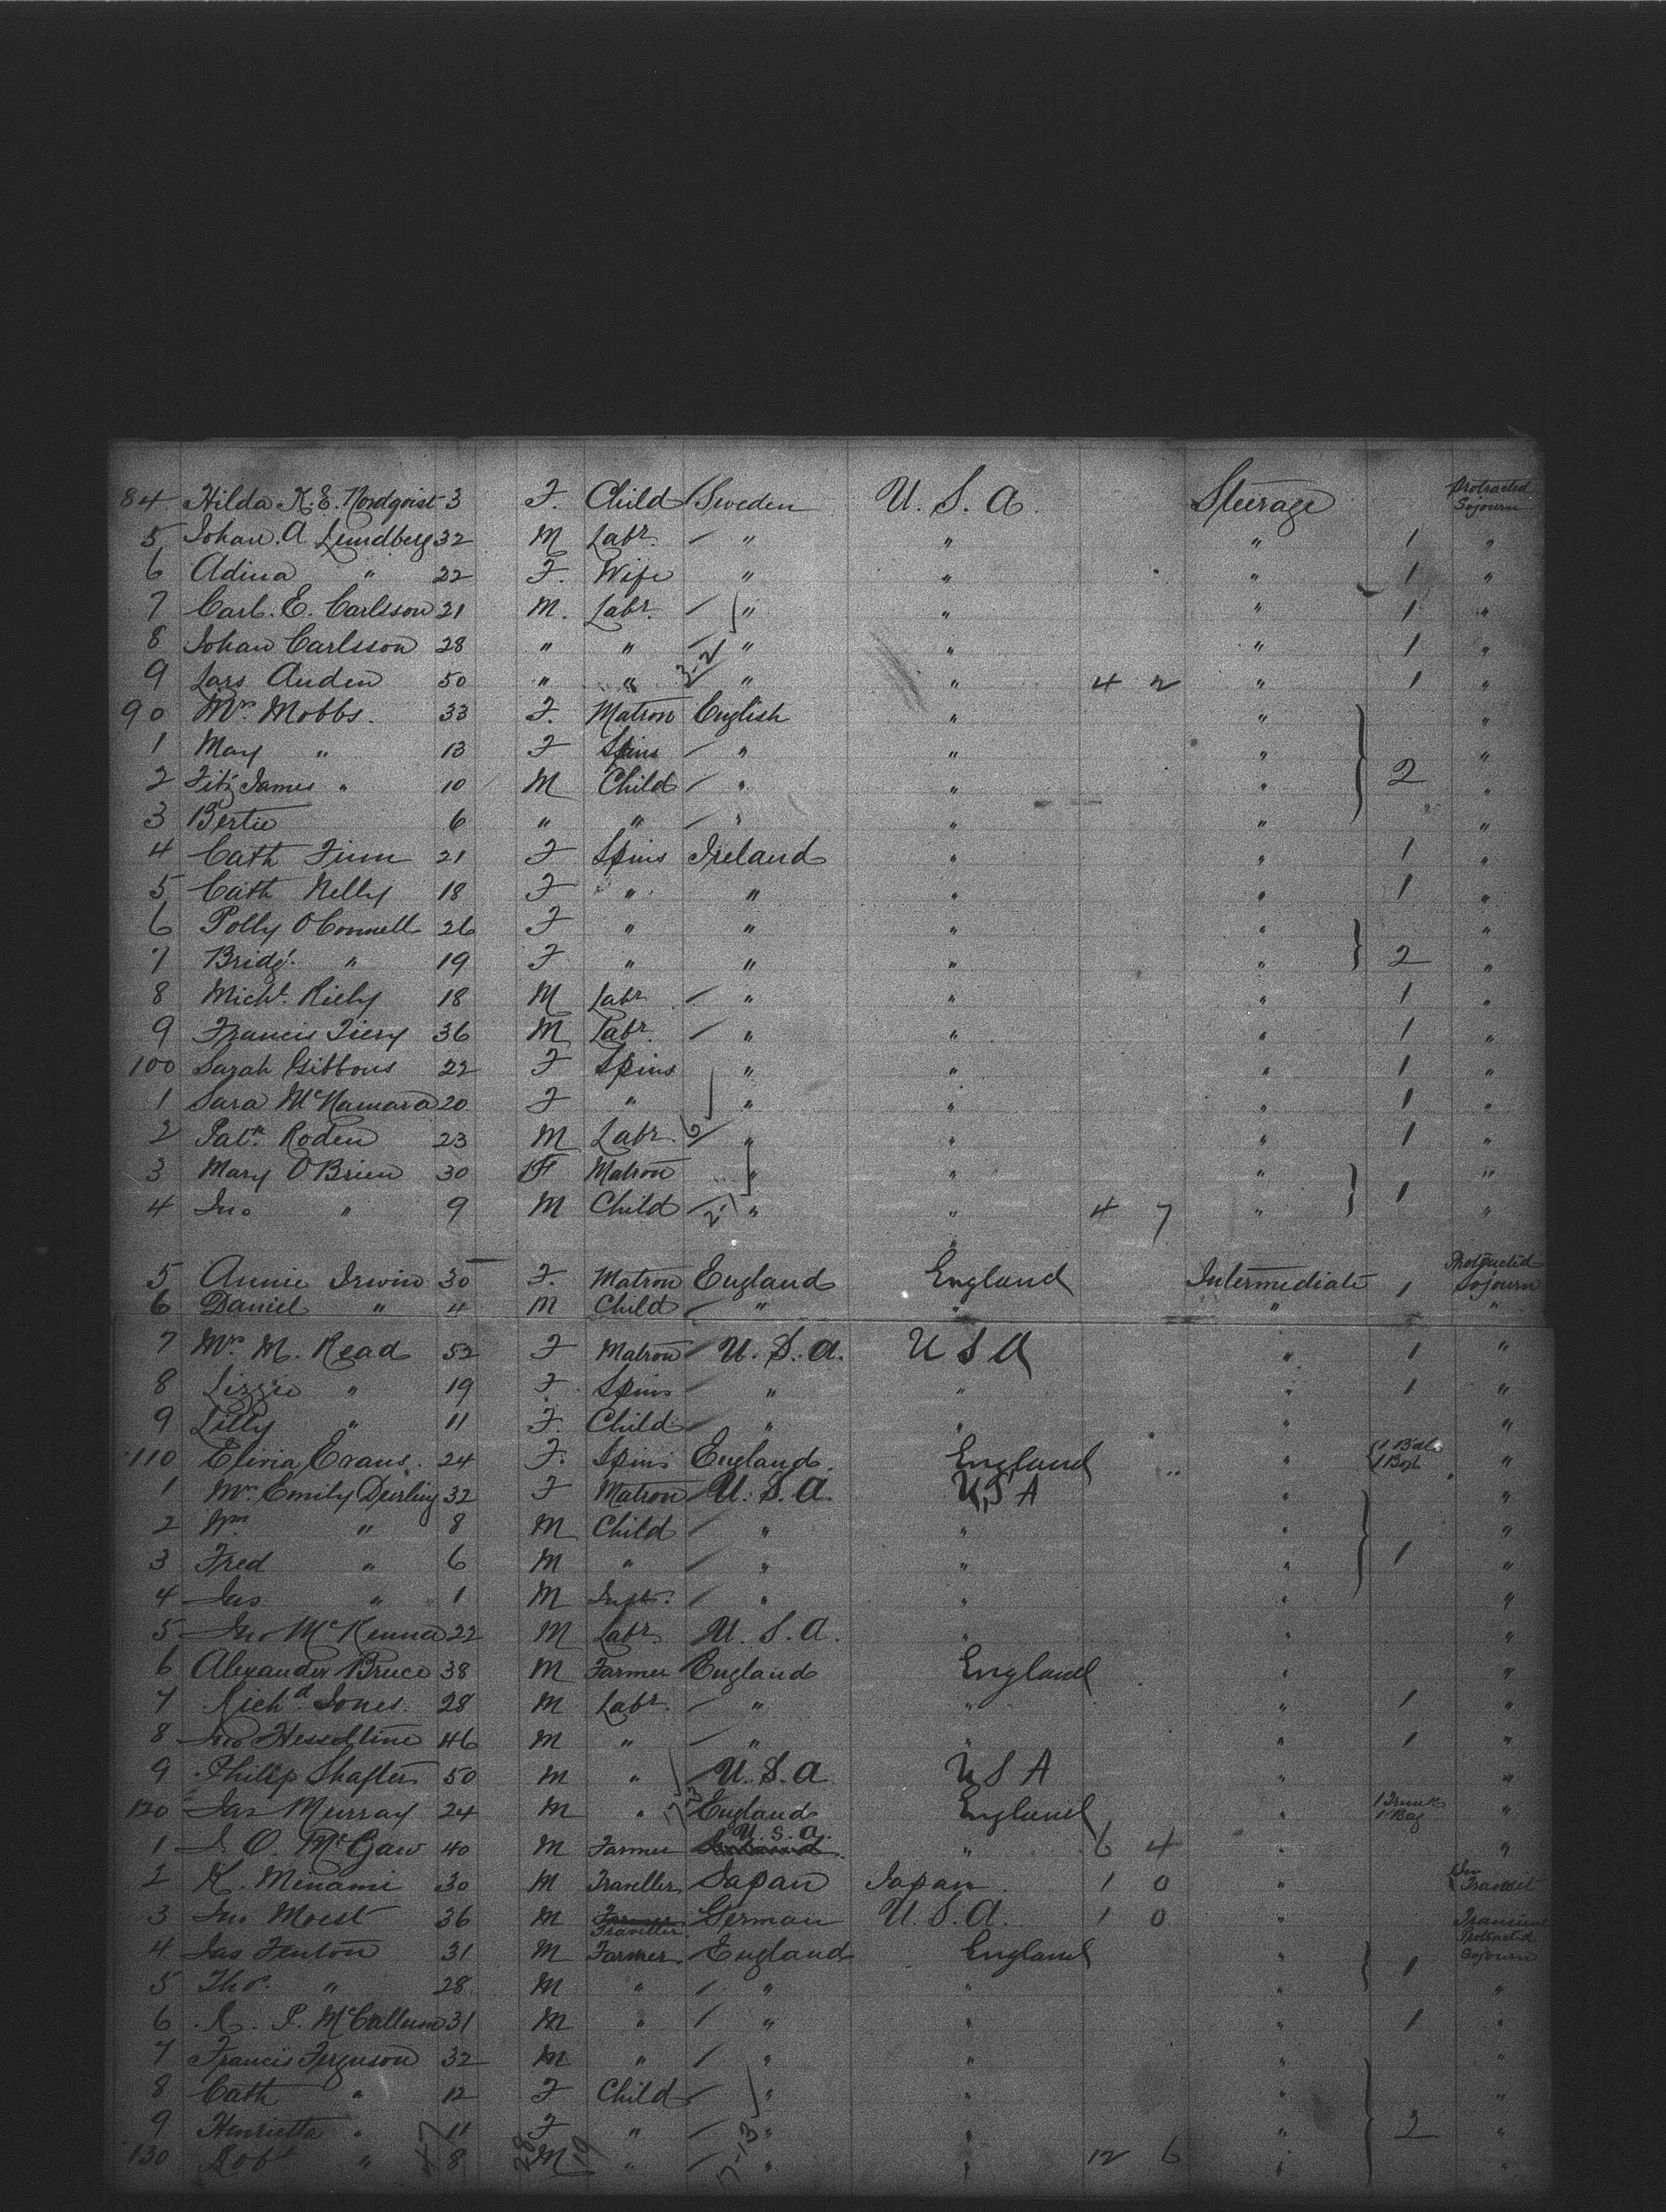 84 Hilda K. E. Nordqvist 3 F. Child Sweden U. S. A. Steerage Protracted Sojourn
5 Johan. A Lundberg 32 M Labr. " " " 1 "
6 Adina " 22 F. Wife " " " 1 "
7 Carl. E. Carlsson 21 M. Labr. " " " 1 "
8 Johan Carlsson 28 " " " " " 1 "
9 Lars Auden 50 " " " " 4 2 " 1 "
90 Mrs Mobbs. 33 F. Matron English " " "
1 May " 13 F Spins " " " "
2 Fitz James " 10 M Child " " " 2 "
3 Bertie 6 " " " " " "
4 Cath Finn 21 F Spins Ireland " " 1 "
5 Cath Kelly 18 F " " " " 1 "
6 Polly O'Connell 26 F " " " " "
7 Bridgt. " 19 F " " " " 2 "
8 Michl. Riely 18 M Labr " " " 1 "
9 Francis Tiery 36 M Labr. " " " 1 "
100 Sarah Gibbons 22 F Spins " " " 1 "
1 Sara McNamara 20 F " " " " 1 "
2 Patk. Roden 23 M Labr. " " " 1 "
3 Mary O'Brien 30 F Matron " " " "
4 Jno " 9 M Child " " 4 7 " 1 "
5 Annie Irwin 30 F. Matron England England Intermediate 1 Protracted Sojourn
6 Daniel " 4 M Child " " " "
7 Mrs M. Read 52 F Matron U. S. A. U S A " 1 "
8 Lizzie " 19 F. Spins " " " 1 "
9 Lilly " 11 F. Child " " " "
110 Elivia Evans. 24 F. Spins England. England " 1 Bdl 1 Box "
1 Mrs Emily Deirling 32 F Matron U. S. A. U S A " "
2 Wm " 8 M Child " " " "
3 Fred " 6 M " " " " 1 "
4 Jas " 1 M Inft. " " " "
5 Jno McKenna 22 M Labr. U. S. A. " " "
6 Alexander Bruce 38 M Farmer England England " "
7 Richd Jones. 28 M Labr. " " " 1 "
8 Jno Hesseltine 46 M " " " " 1 "
9 Philip Shafter 50 M " U. S. A. U S A " "
120 Jas Murray 24 M " England England " 1 Trunk 1 Bag "
1 J. O. McGaw 40 M Farmer U. S. A. " 6 4 " "
2 K. Minami 30 M Traveller Japan Japan. 1 0 " In Transit
3 Jno Moest 36 M Farmer Traveller. German U. S. A. 1 0 " Transient
4 Jas Fenton 31 M Farmer. England England " 1 Protracted Sojourn
5 Thos. " 28 M " " " " "
6 R. P. McCallum 31 M " " " " 1 "
7 Francis Ferguson 32 M " " " " "
8 Cath " 12 F Child " " " "
9 Henrietta " 11 F " " " " 2 "
130 Robt " 8 M " " " 12 6 " "